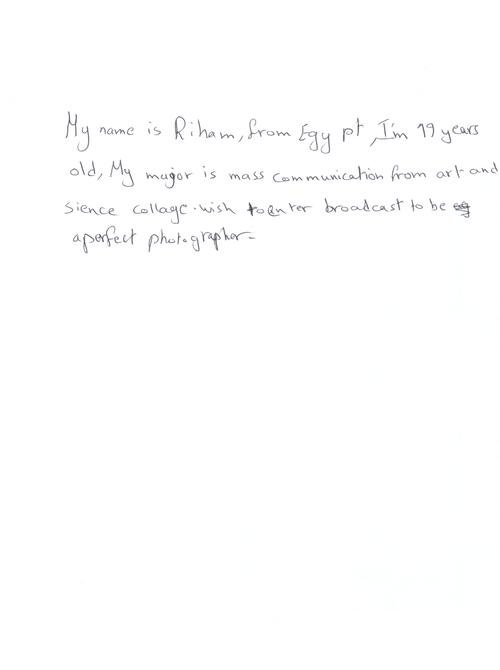 My name is Riham, from Egy pt, I'm 19 years
old, My major is mass communication from art and
Sience collage. wish to enter broadcast to be
aperfect photographer.